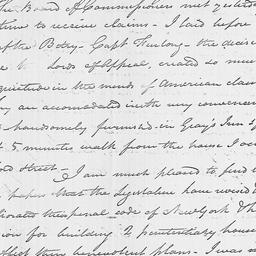 The Board of Commissioners not yet
time to receive claims - I laid before
of the Betsy - Capt Furlong - the decisi
Lords of Appeal, created so much
quietude in the minds of American claim
by an accomodated with very convenien
handsomely furnished in Gray's Inn S
5 minutes walk from the house I oc
ord Street -
I am much pleased to find t
papers that the Legislature have revised
iorated the penal code of New York & h
ion for building 2 penitentiary house
effect their benevolent plans - I was m